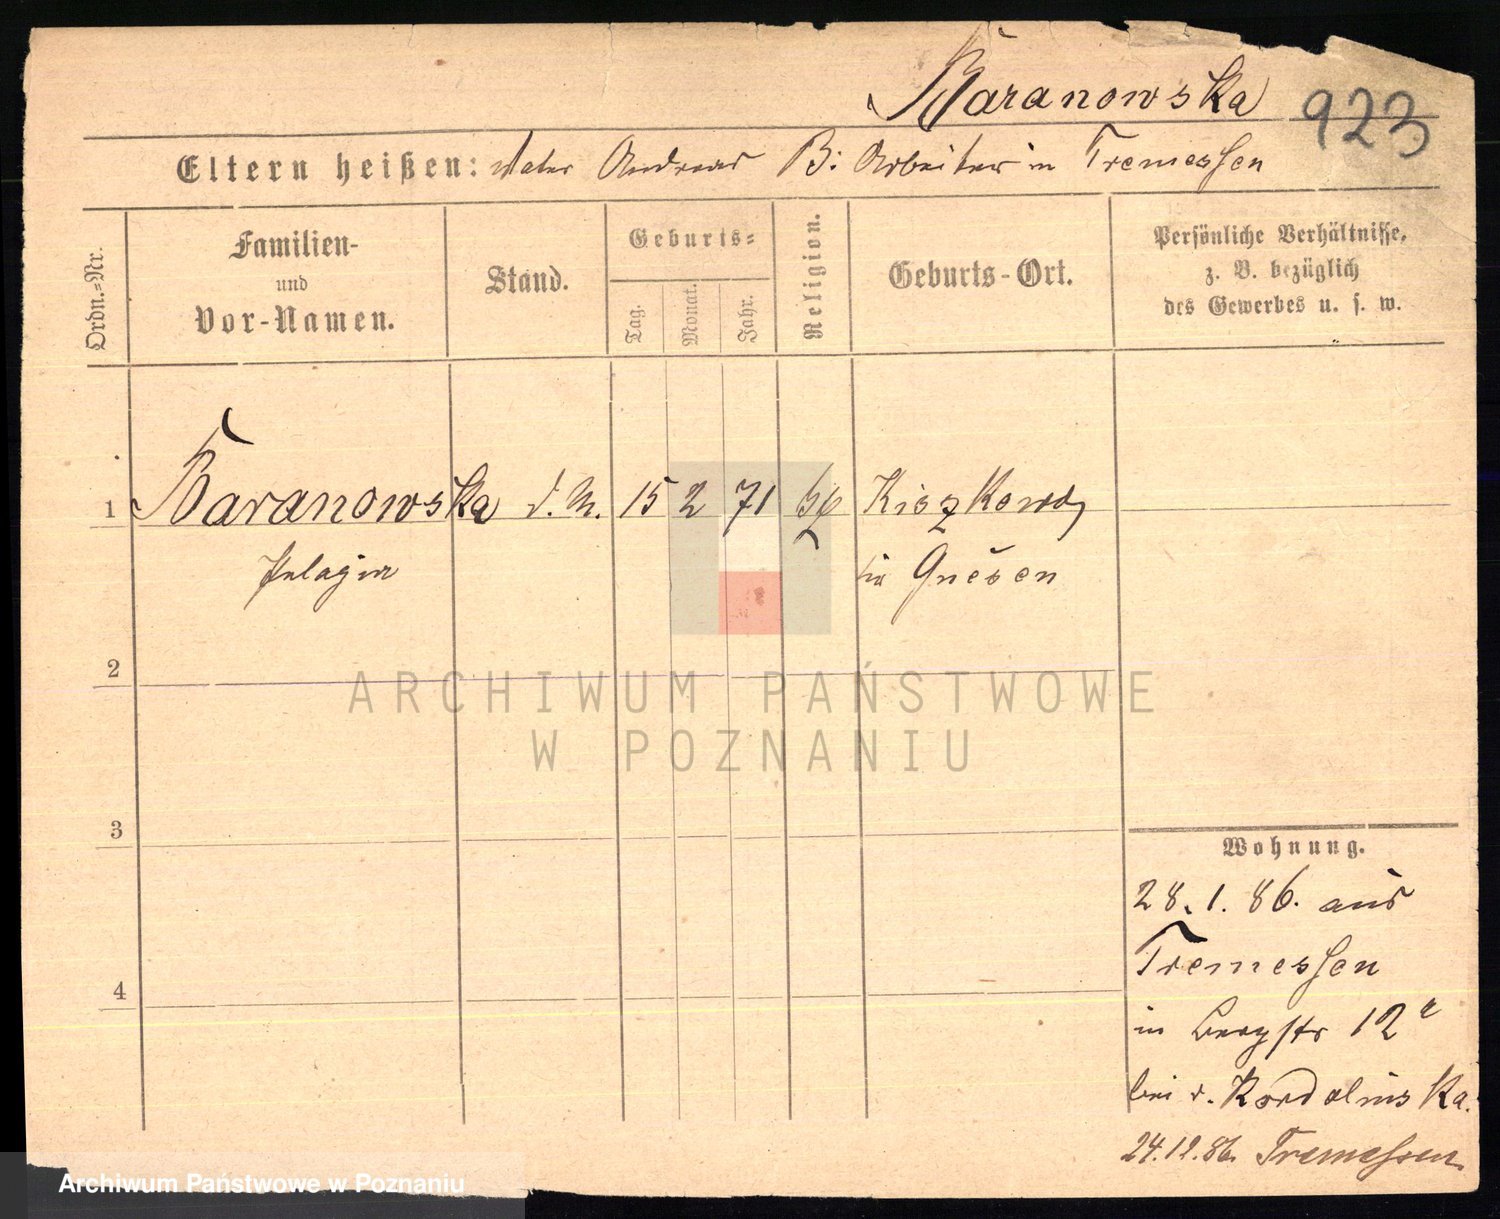 Baranowska 923
Eltern heißen: Vater Andreas B: Arbeiter in Tremessen
Ordn.=Nr.
Familien-
und
Vor-Namen.
Stand.
Geburts=
Tag.
Monat.
Jahr.
Religion.
Geburts-Ort.
Persönliche Verhältnisse,
z. B. bezüglich
des Gewerbes u. s. w.
1 Baranowska d. M. 15 2 71 Kiszkowo
Pelagia Gnesen
2
3
4
ARCHIWUM PAŃSTWOWE
W POZNANIU
Wohnung.
28. 1. 86. aus
Tremessen
in Bergstr 12a
bei d. Kordolinska.
24.12.86. Tremessen.
Archiwum Państwowe w Poznaniu